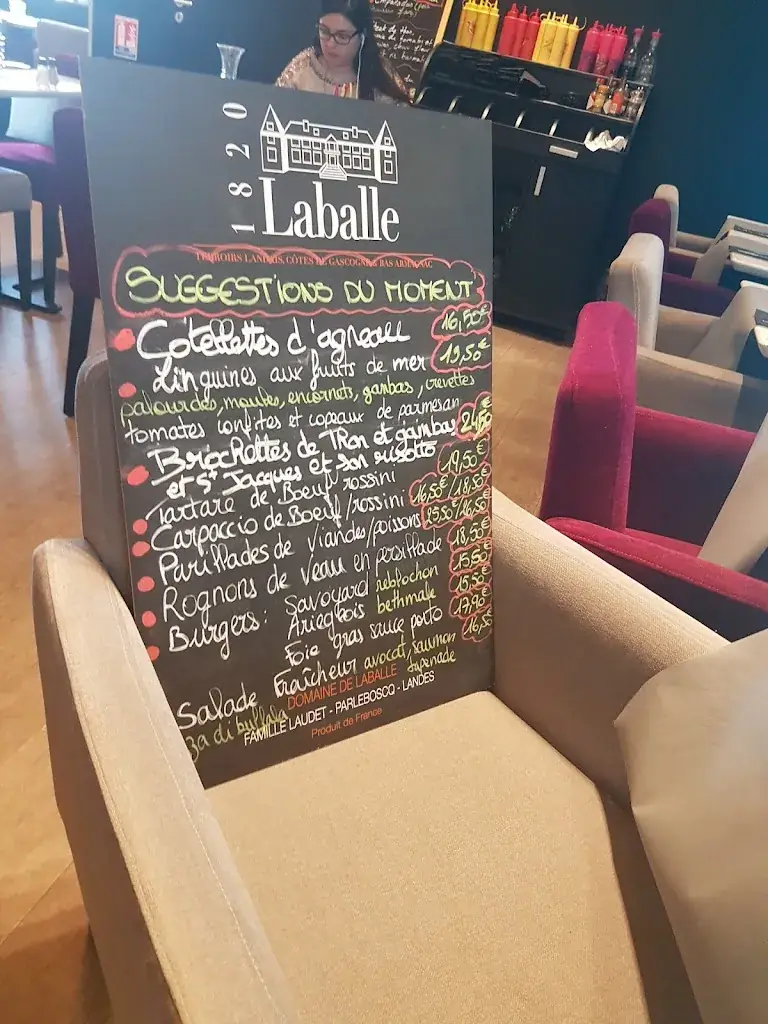 1820
Laballe
TERROIRS LANDAIS, CÔTES DE GASCOGNE & BAS ARMAGNAC
SUGGESTIONS DU MOMENT
Côtellettes d'agneau 16,50€
Linguines aux fruits de mer 19,50€
palourdes, moules, encornets, gambas, crevettes
tomates confites et copeaux de parmesan
Brochettes de Thon et gambas 24,50€
et St Jacques et son risotto
Tartare de Boeuf rossini 19,50€
Carpaccio de Boeuf/rossini 16,50€/18,50€
Parillades de viandes/poissons 25,50€/26,50€
Rognons de veau en persillade 18,50€
Burgers: Savoyard reblochon 15,50€
Ariegeois bethmale 15,50€
Foie gras sauce porto 17,90€
Salade Fraîcheur avocat, saumon 16,50€
za di buffala tapenade
DOMAINE DE LABALLE
FAMILLE LAUDET - PARLEBOSCQ - LANDES
Produit de France